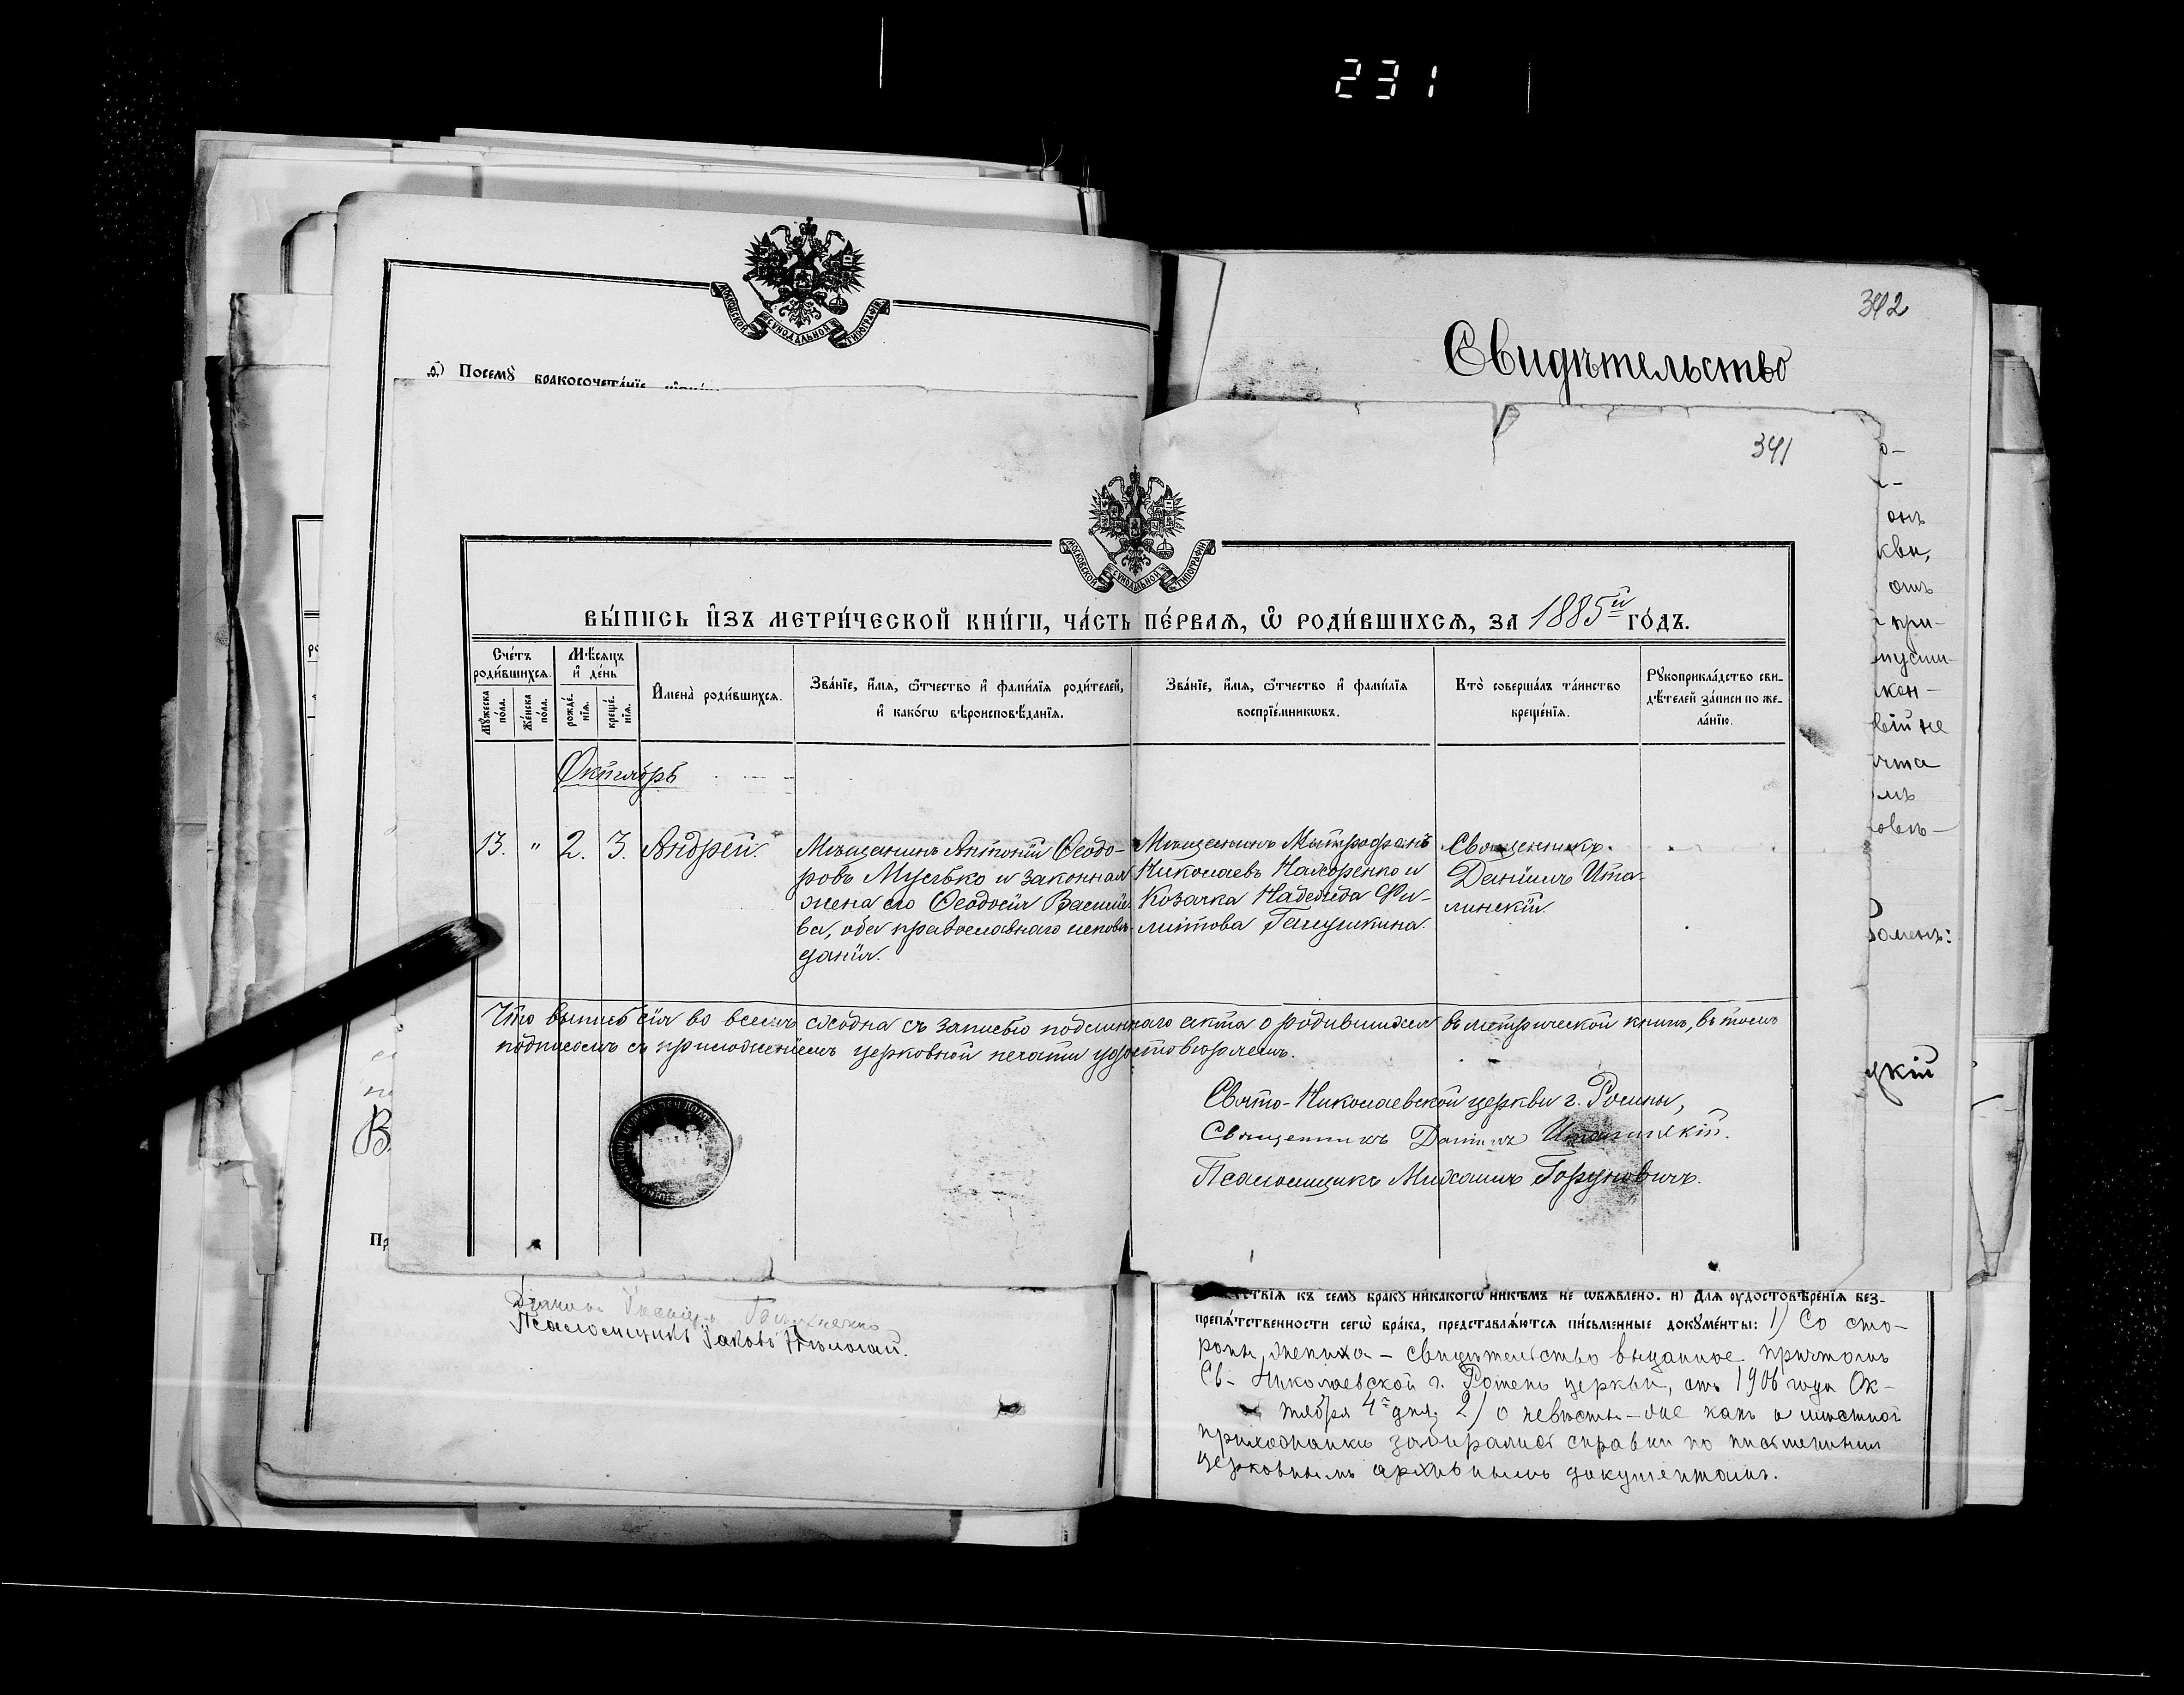 231
342
Свидѣтельство
341
МОСКОВСКОЙ СѴНОДАЛЬНОЙ ТИПОГРАФІИ
д҃) Посемꙋ̀ бракосочета́нїе
МОСКОВСКОЙ СѴНОДАЛЬНОЙ ТИПОГРАФІИ
ВЫ́ПИСЬ И҆ЗЪ МЕТРИ́ЧЕСКОЙ КНИ́ГИ, ЧА́СТЬ ПЕ́РВАѦ, Ѡ҆ РОДИ́ВШИХСѦ, ЗА 1885й ГО́ДЪ.
Сче́тъ роди́вшихсѧ.
Мꙋ́жеска по́ла.
Же́нска по́ла.
Мѣ́сѧцъ и҆ де́нь
рожде́нїѧ.
креще́нїѧ.
И҆мена̀ роди́вшихсѧ.
Зва́нїе, и҆́мѧ, ѻ҆́тчество и҆ фами́лїѧ роди́телей, и҆ како́гѡ вѣроисповѣ́данїѧ.
Зва́нїе, и҆́мѧ, ѻ҆́тчество и҆ фами́лїѧ воспрїе́мникѡвъ.
Кто̀ соверша́лъ та́инство креще́нїѧ.
Рꙋкоприкла́дство свидѣ́телей за́писи по жела́нїю.
Октябрь
13. " 2. 3. Андрей.
Мѣщанинъ Антоній Ѳеодо-
ровъ Мусѣко и законная
жена его Ѳеодосія Василіе-
ва, оба православнаго исповѣ-
данія.
Мѣщанинъ Митрофанъ
Николаевъ Назоренко и
Козачка Надежда Фи-
липова Галушкина.
Священникъ
Даніилъ Ита-
линскій.
Что выпись сія во всемъ сходна съ записью подлиннаго акта о родившихся въ метрической книгѣ, въ томъ
подписомъ съ приложеніемъ церковной печати удостовѣряемъ.
Свято-Николаевской церкви г. Ромны,
Священникъ Даніилъ Италинскій.
Псаломщикъ Михаилъ Горуновичъ.
Псаломщикъ Іаковъ
онъ
кви,
отъ
при-
кон-
вій не
цкій
къ семꙋ̀ бракꙋ никакогѡ никѣмъ не ѡбѧвлено. и҃) Длѧ ᲂудостовѣренїѧ без-
препѧ́тственности сегѡ̀ бра́ка, представлѧ́ютсѧ пи́сьменные докꙋме́нты: 1) Со сто-
роны жениха – свидѣтельство выданное причтомъ
Св- Николаевской г. Роменъ церкви, отъ 1906 года Ок-
тября 4го дня; 2) о невѣстѣ – же какъ о мѣстной
прихожанкѣ забирались справки по письменнымъ
церковнымъ архивнымъ документамъ.